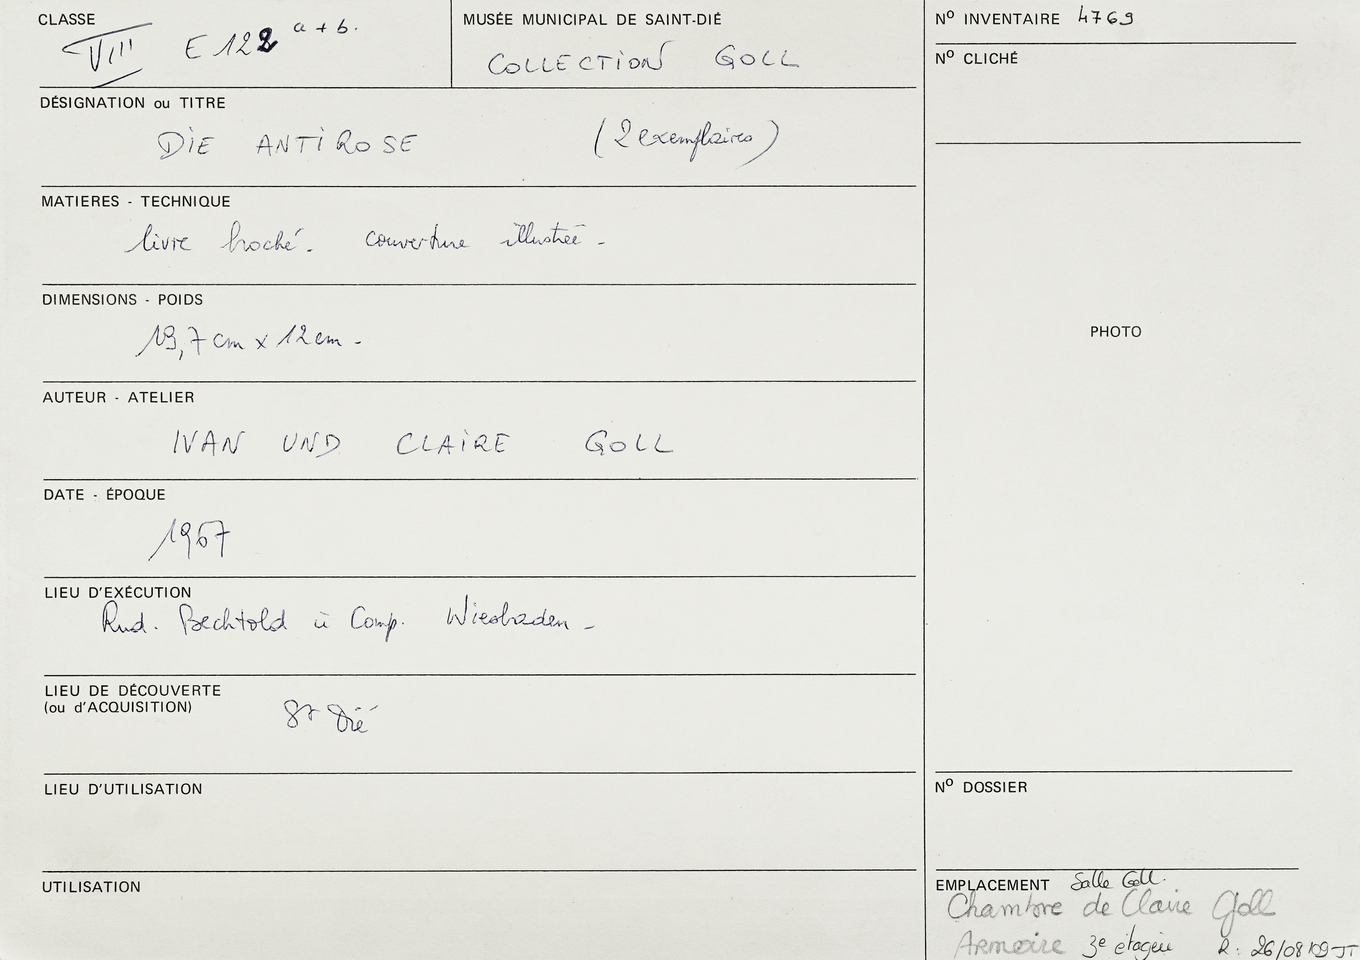 CLASSE
VIII E 122 a + b.
MUSÉE MUNICIPAL DE SAINT-DIÉ
COLLECTION GOLL
Nº INVENTAIRE 4769
Nº CLICHÉ
DÉSIGNATION ou TITRE
DIE ANTIROSE (2 exemplaires)
MATIERES - TECHNIQUE
livre broché. couverture illustrée -
DIMENSIONS - POIDS
19,7 cm x 12 cm -
PHOTO
AUTEUR - ATELIER
IVAN UND CLAIRE GOLL
DATE - ÉPOQUE
1967
LIEU D'EXÉCUTION
Rud. Bechtold ü Comp. Wiesbaden -
LIEU DE DÉCOUVERTE
(ou d'ACQUISITION) St Dié
LIEU D'UTILISATION
Nº DOSSIER
UTILISATION
EMPLACEMENT Salle Goll.
Chambre de Claire Goll
Armoire 3e étagère R: 26/08/09 JT